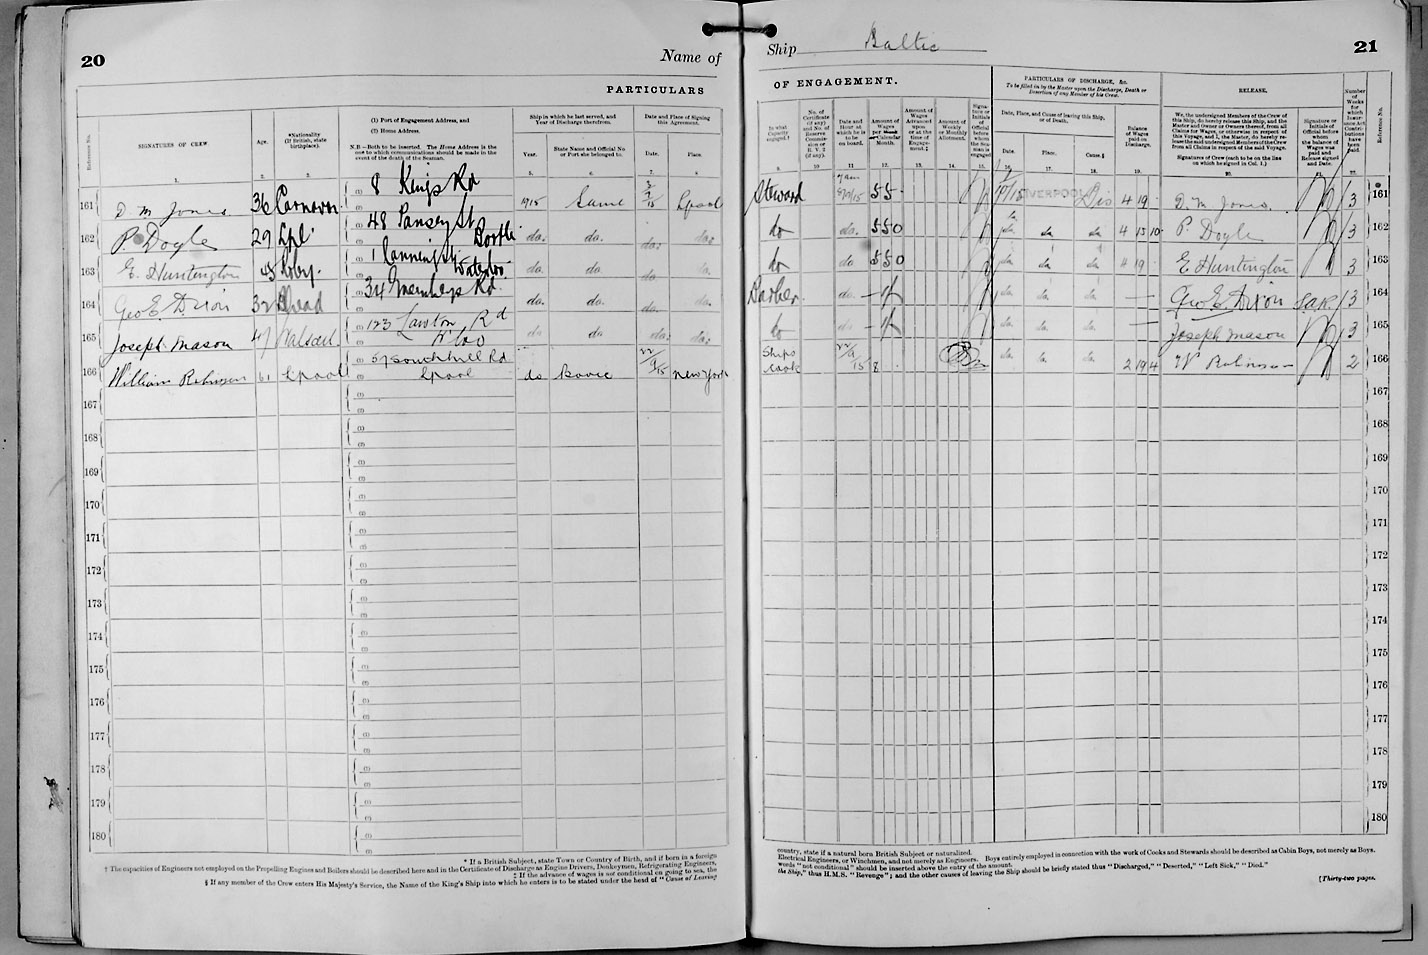 20
Name of
Ship Baltic
21
PARTICULARS
OF ENGAGEMENT.
PARTICULARS OF DISCHARGE, &c.
To be filled in by the Master upon the Discharge, Death or
Desertion of any Member of his Crew.
RELEASE.
Reference No.
SIGNATURES OF CREW.
Age.
*Nationality
(If British, state
birthplace).
(1) Port of Engagement Address, and
(2) Home Address.
N.B.—Both to be inserted. The Home Address is the
one to which communications should be made in the
event of the death of the Seaman.
Ship in which he last served, and
Year of Discharge therefrom.
Year.
State Name and Official No
or Port she belonged to.
Date and Place of Signing
this Agreement.
Date.
Place.
In what
Capacity
engaged.
No. of
Certificate
(if any)
and No. of
Reserve
Commis-
sion or
R. V. 2
(if any).
Date and
Hour at
which he is
to be
on board.
Amount of
Wages
per
Calendar
Month.
Amount of
Wages
Advanced
upon
or at the
time of
Engage-
ment.‡
Amount of
Weekly
or Monthly
Allotment.
Signa-
ture or
Initials of
Official
before
whom
the Sea-
man is
engaged
Date, Place, and Cause of leaving this Ship,
or of Death.
Date.
Place.
Cause.§
Balance
of Wages
paid on
Discharge.
We, the undersigned Members of the Crew of
this Ship, do hereby release this Ship, and the
Master and Owner or Owners thereof, from all
Claims for Wages, or otherwise in respect of
this Voyage, and I, the Master, do hereby re-
lease the said undersigned Members of the Crew
from all Claims in respect of the said Voyage.
Signatures of Crew (each to be on the line
on which he signed in Col. 1.)
Signature or
Initials of
Official before
whom
the balance
of Wages
was paid and
Release signed
and Date.
Number
of
Weeks
for
which
Insur-
ance Act
Contri-
butions
have
been
paid.
Reference No.
161 D. M. Jones 36 Carnavon 8 Kings Rd 1915 Same Lpool Steward 7 am 55 LIVERPOOL Dis 4 19 D. M. Jones. 3 161
162 P. Doyle 29 Lpl 48 Pansey St Bootle do. do. do. do. do do. 5 5 0 do. do. do. 4 15 10 P. Doyle 3 162
163 E. Huntington 45 1 Canning St Waterloo do. do. do. do. do do 5 5 0 do. do. do. 4 19 E Huntington 3 163
164 Geo E. Dixon 32 B'head 34 Rd. do. do. do. do. Barber do. 1/- do. do. do. — Geo E. Dixon 3 164
165 Joseph Mason 47 Walsall 123 Lawton Rd W'loo do do do. do. do do 1/- do. do. do. — Joseph Mason 3 165
166 William Robinson 61 Lpool 57 Southhill Rd Lpool do Bovic 22/9/15 New York Ships Cook 22/9/15 8 do. do. do. 2 19 4 W Robinson 2 166
167 167
168 168
169 169
170 170
171 171
172 172
173 173
174 174
175 175
176 176
177 177
178 178
179 179
180 180
* If a British Subject, state Town or Country of Birth, and if born in a foreign
country, state if a natural born British Subject or naturalized.
† The capacities of Engineers not employed on the Propelling Engines and Boilers should be described here and in the Certificate of Discharge as Engine Drivers, Donkeymen, Refrigerating Engineers,
Electrical Engineers, or Winchmen, and not merely as Engineers. Boys entirely employed in connection with the work of Cooks and Stewards should be described as Cabin Boys, not merely as Boys.
‡ If the advance of wages is not conditional on going to sea, the
words "not conditional" should be inserted above the entry of the amount.
§ If any member of the Crew enters His Majesty's Service, the Name of the King's Ship into which he enters is to be stated under the head of "Cause of Leaving
the Ship," thus H.M.S. "Revenge"; and the other causes of leaving the Ship should be briefly stated thus "Discharged," "Deserted," "Left Sick," "Died."
[Thirty-two pages.